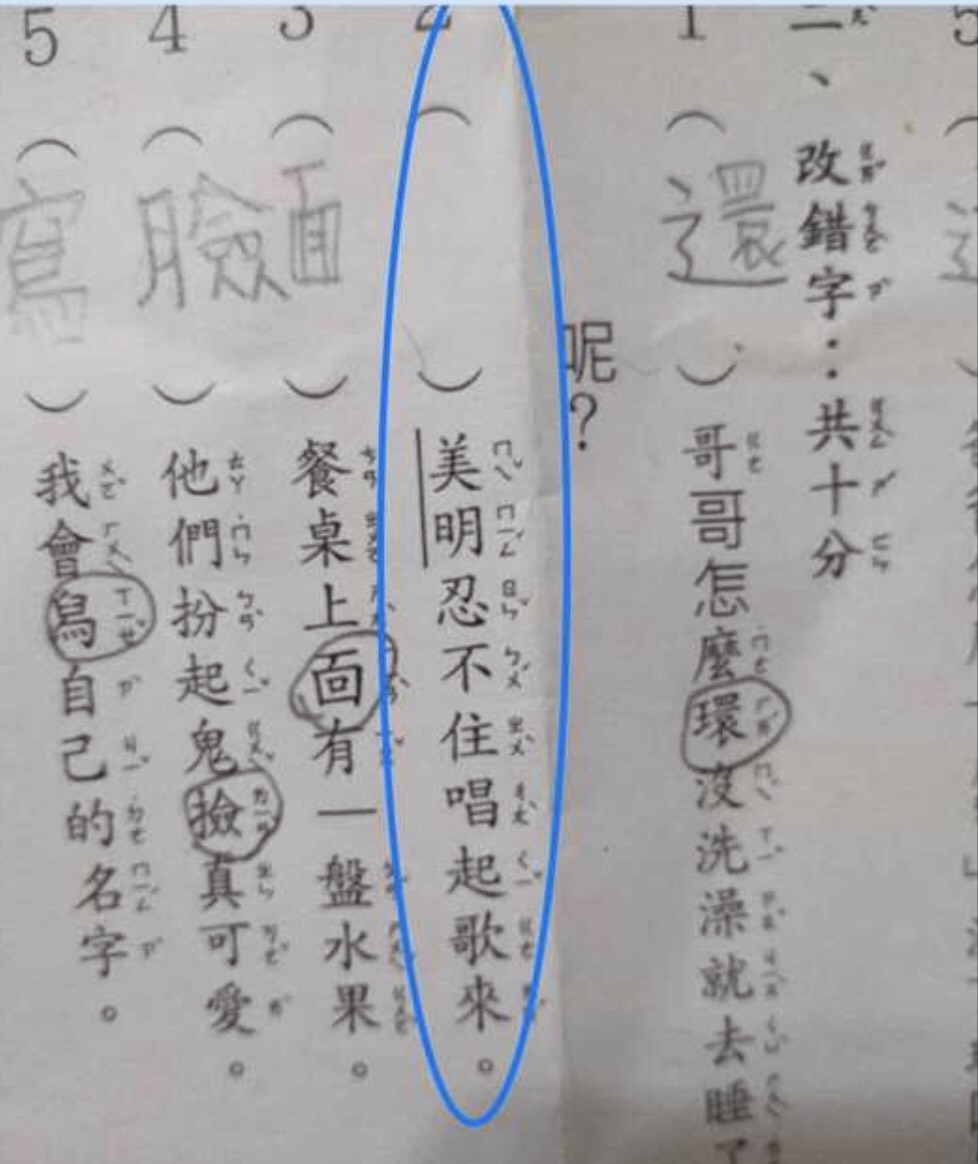 二、改錯字：共十分
1（還）哥哥怎麼環沒洗澡就去睡了
呢？
2（　）美明忍不住唱起歌來。
3（面）餐桌上面有一盤水果。
4（臉）他們扮起鬼撿真可愛。
5（寫）我會舄自己的名字。